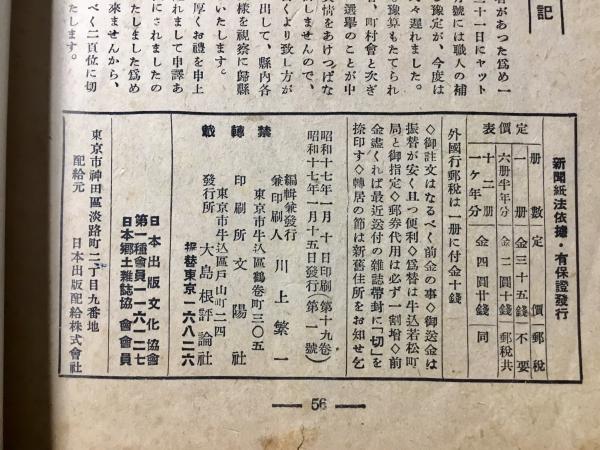 記
者があつた爲め一
三十一日にヤット
月號には職人の補
豫定が、今度は
々遲れました。
豫算もたてられ
、町村會と次ぎ
選擧のことが中
情をあけつぱな
しませんので、
くより致し方が
出して、縣内各
樣を視察に歸縣
いたします。
厚くお禮を申上
れまして申譯あ
にされましたの
たしました爲め
來ませんから、
べく二百位に切
たします。
新聞紙法依據・有保證發行
定價表
册數 定價 郵稅
一册 金三十五錢 不要
六册半年分 金二圓十錢 郵稅共
十二册一ケ年分 金四圓廿錢 同
外國行郵稅は一册に付金十錢
◇御註文はなるべく前金の事◇御送金は
振替が安く且つ便利◇爲替は牛込若松町
局と御指定◇郵券代用は必ず一割增◇前
金盡くれば最近送付の雜誌帶封に「切」を
捺印す◇轉居の節は新舊住所をお知せ乞
昭和十七年一月十日印刷(第十九卷)
昭和十七年一月十五日發行(第一號)
禁轉載
編輯兼發行兼印刷人 川上繁一
東京市牛込區鶴卷町三〇五
印刷所 文陽社
東京市牛込區戸山町二四
發行所 大島根評論社
振替東京一六八二六
日本出版文化協會
第一種會員一六一二七
日本鄕土雜誌協會會員
東京市神田區淡路町二丁目九番地
配給元 日本出版配給株式會社
56